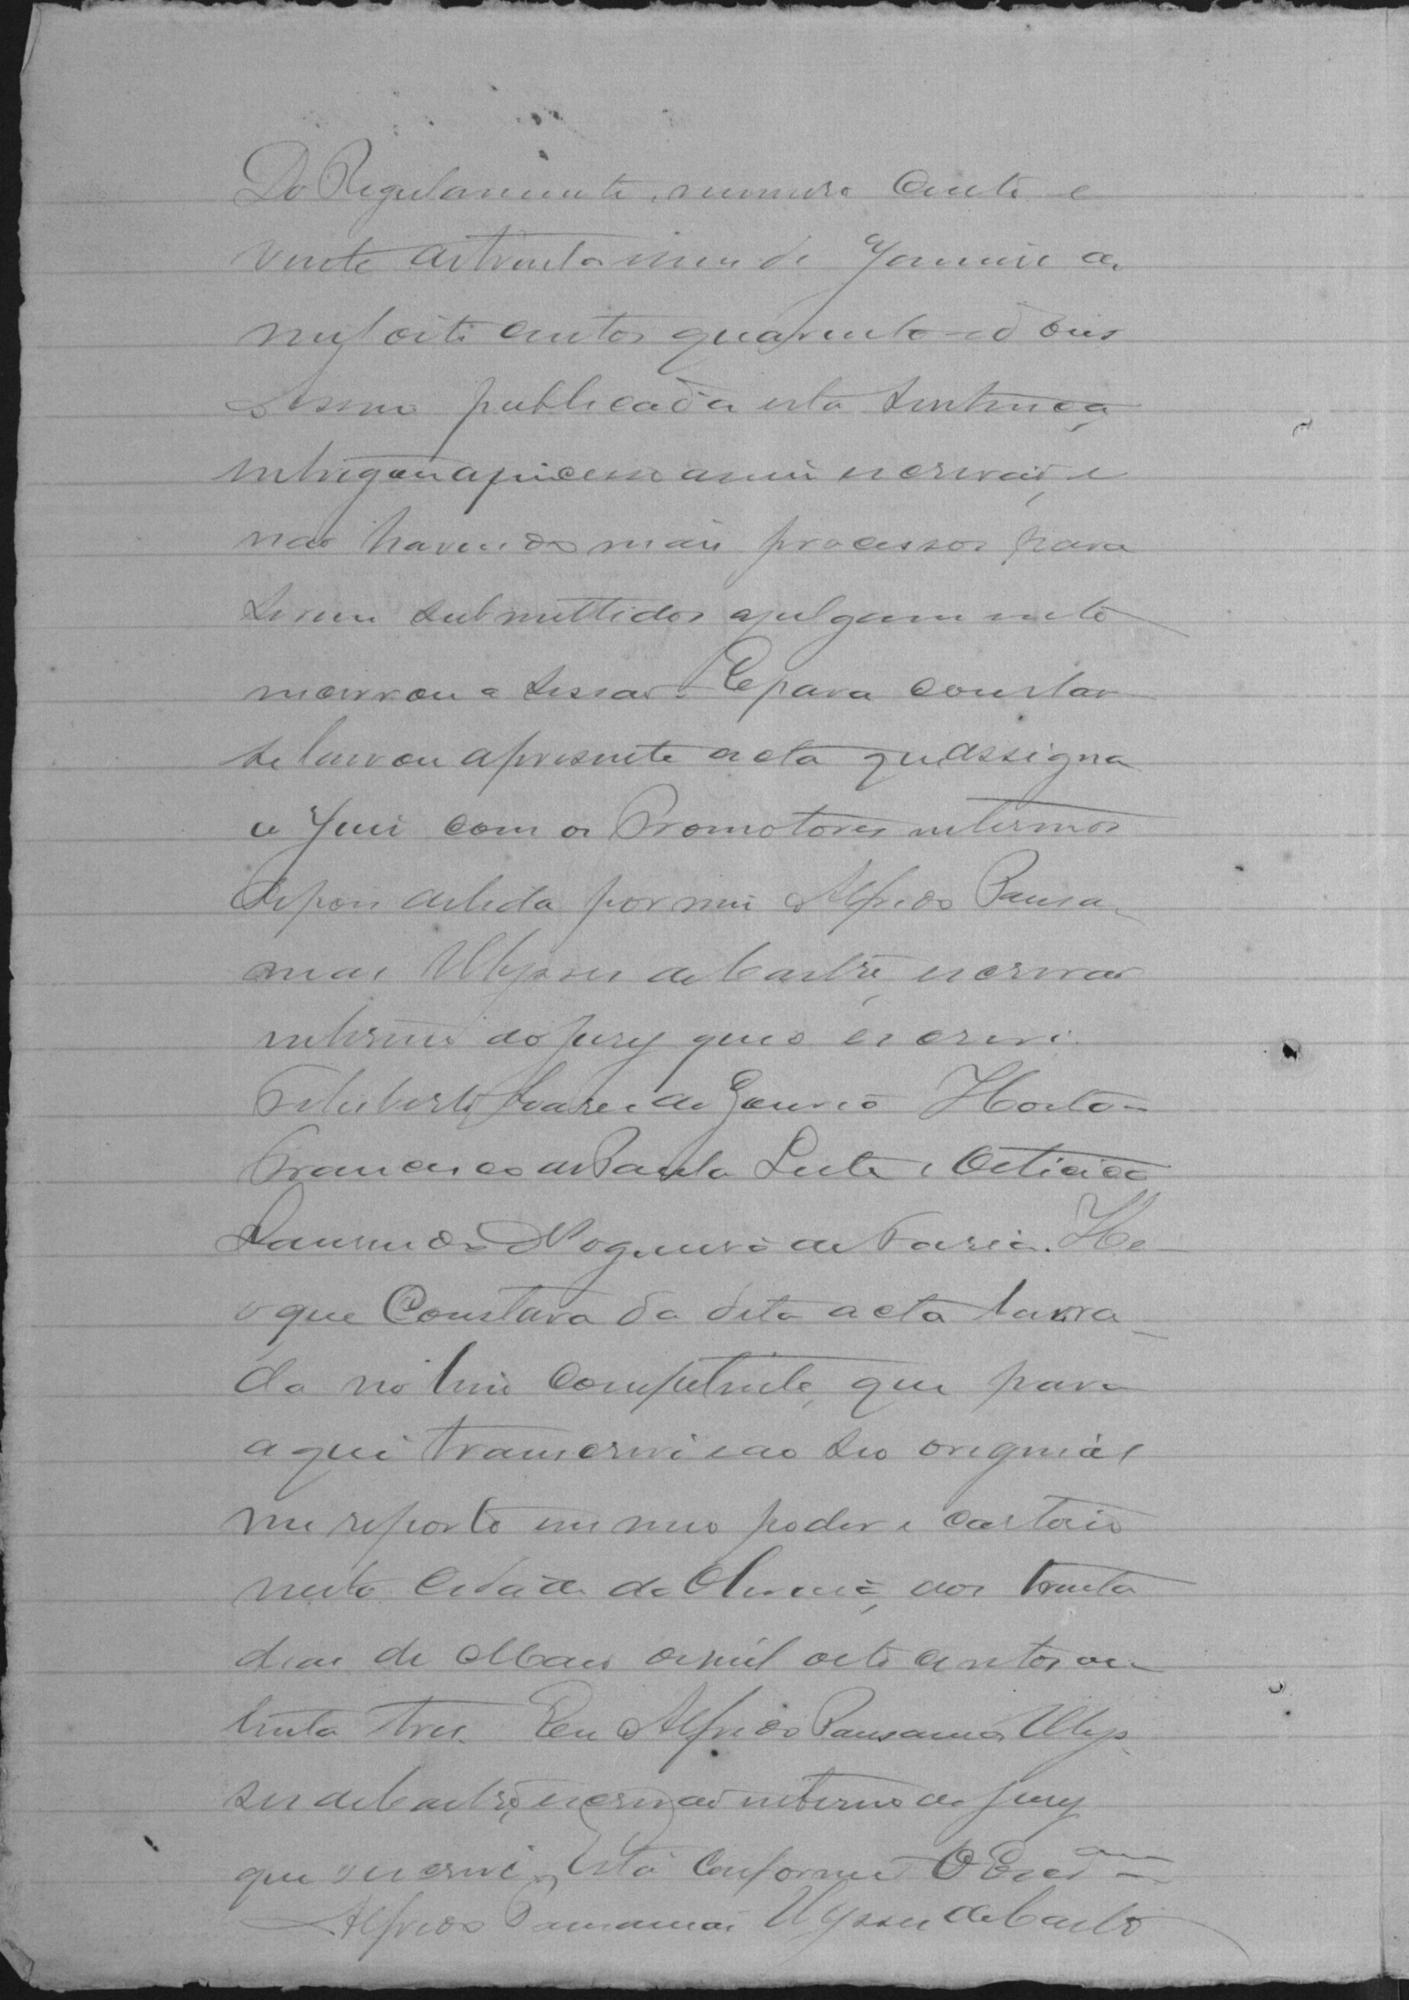 Do Regulamento numero Cento e
vinte de trinta e um de Janeiro de
mil oito centos quarenta e dous
Assim publicada esta sentença
entregou a processo a mim escrivão e
não havendo mais processos para
serem submettidos a julgamento
encerrou a sessão. E para constar
se lavrou a presente acta que assigna
o Juiz com os Promotores interinos
depois de lida por mim Alfredo Pausa-
nias Ulysses de Castro, escrivão
interino do Jury que o escrevi.
Feliberto Soares de Gouveia Horta
Francisco de Paula Leite e Oiticica
Laurindo Nogueira de Faria. He
o que Constava da dita acta lavra-
da no livro competente, que para
aqui transcrevi e ao seo original
me reporto em meo poder e cartorio
nesta Cidade de aos trinta
dias de Maio de mil oito centos oi-
tenta tres. Eu Alfredo Pausanias Ulys-
ses de Castro, escrivão interino do Jury
que o escrevi. Está Conforme O Escr.am
Alfredo Pausanias Ulysses de Castro